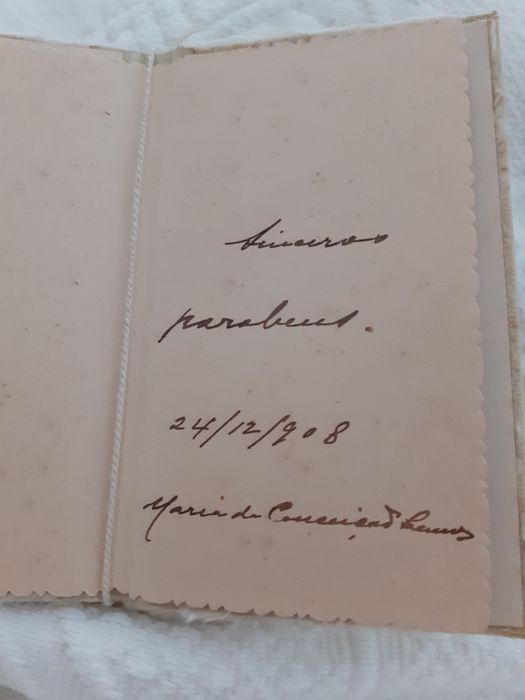 Sinceros
parabens.
24/12/908
Maria da Conceição Lemos